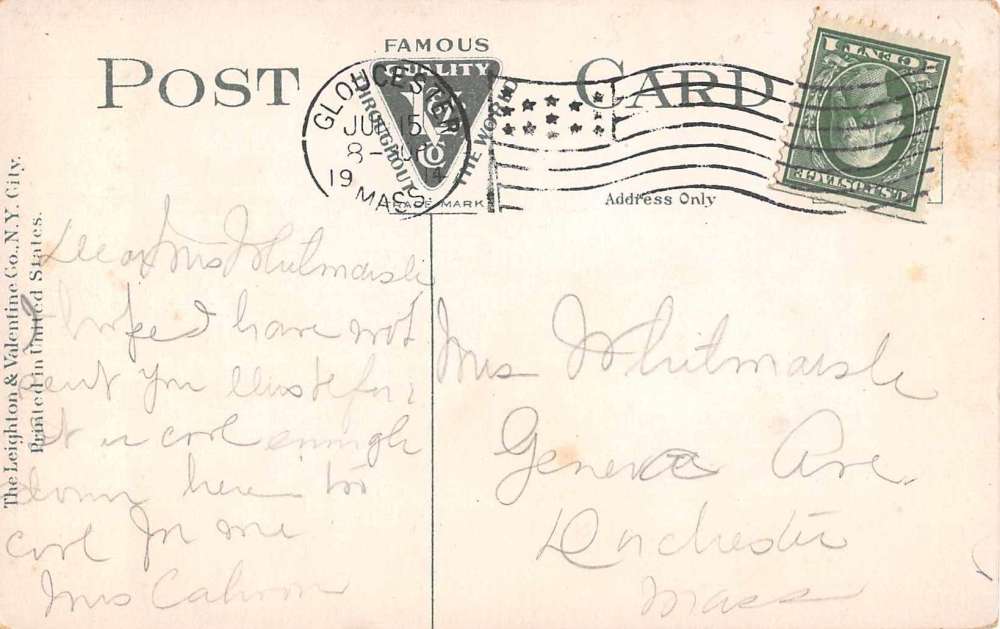 POST CARD
FAMOUS
QUALITY
THROUGHOUT THE WORLD
TRADE MARK
GLOUCESTER
JUL 15
8-PM
19 14
MASS.
ONE CENT
U.S. POSTAGE
Address Only
The Leighton & Valentine Co., N.Y. City.
Printed in United States.
Dear Mrs Whitmarsh
I hope I have not
sent you
it is cool enough
down here too
cool for me
Mrs Calhoun
Mrs Whitmarsh
Geneva Ave.
Dorchester
Mass